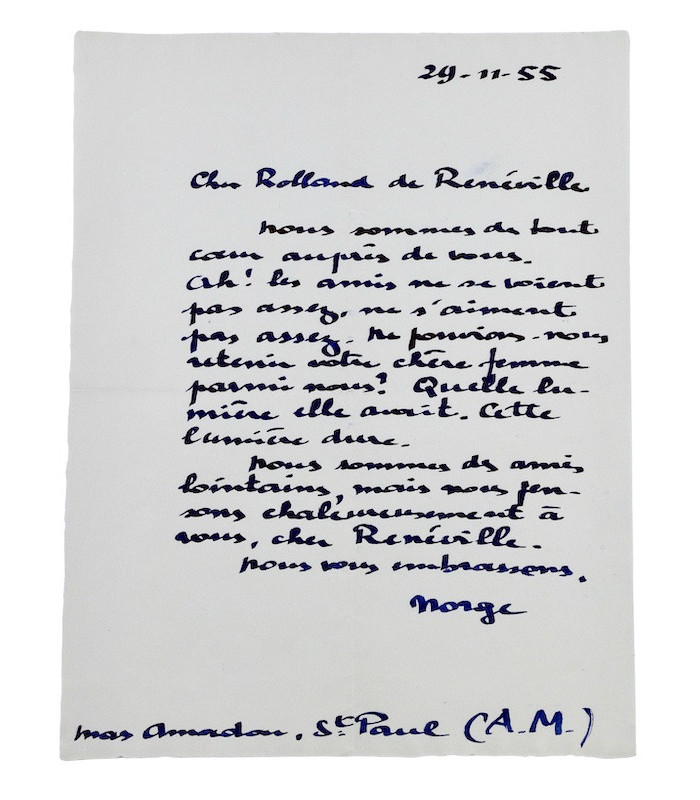 29-11-55
Cher Rolland de Renéville
Nous sommes de tout
cœur auprès de vous.
Ah! les amis ne se voient
pas assez, ne s'aiment
pas assez. Ne pouvions-nous
retenir votre chère femme
parmi nous? Quelle lu-
mière elle avait. Cette
lumière dure.
Nous sommes des amis
lointains, mais nous pen-
sons chaleureusement à
vous, cher Renéville.
Nous vous embrassons.
Norge
mas Amadou, St Paul (A.M.)